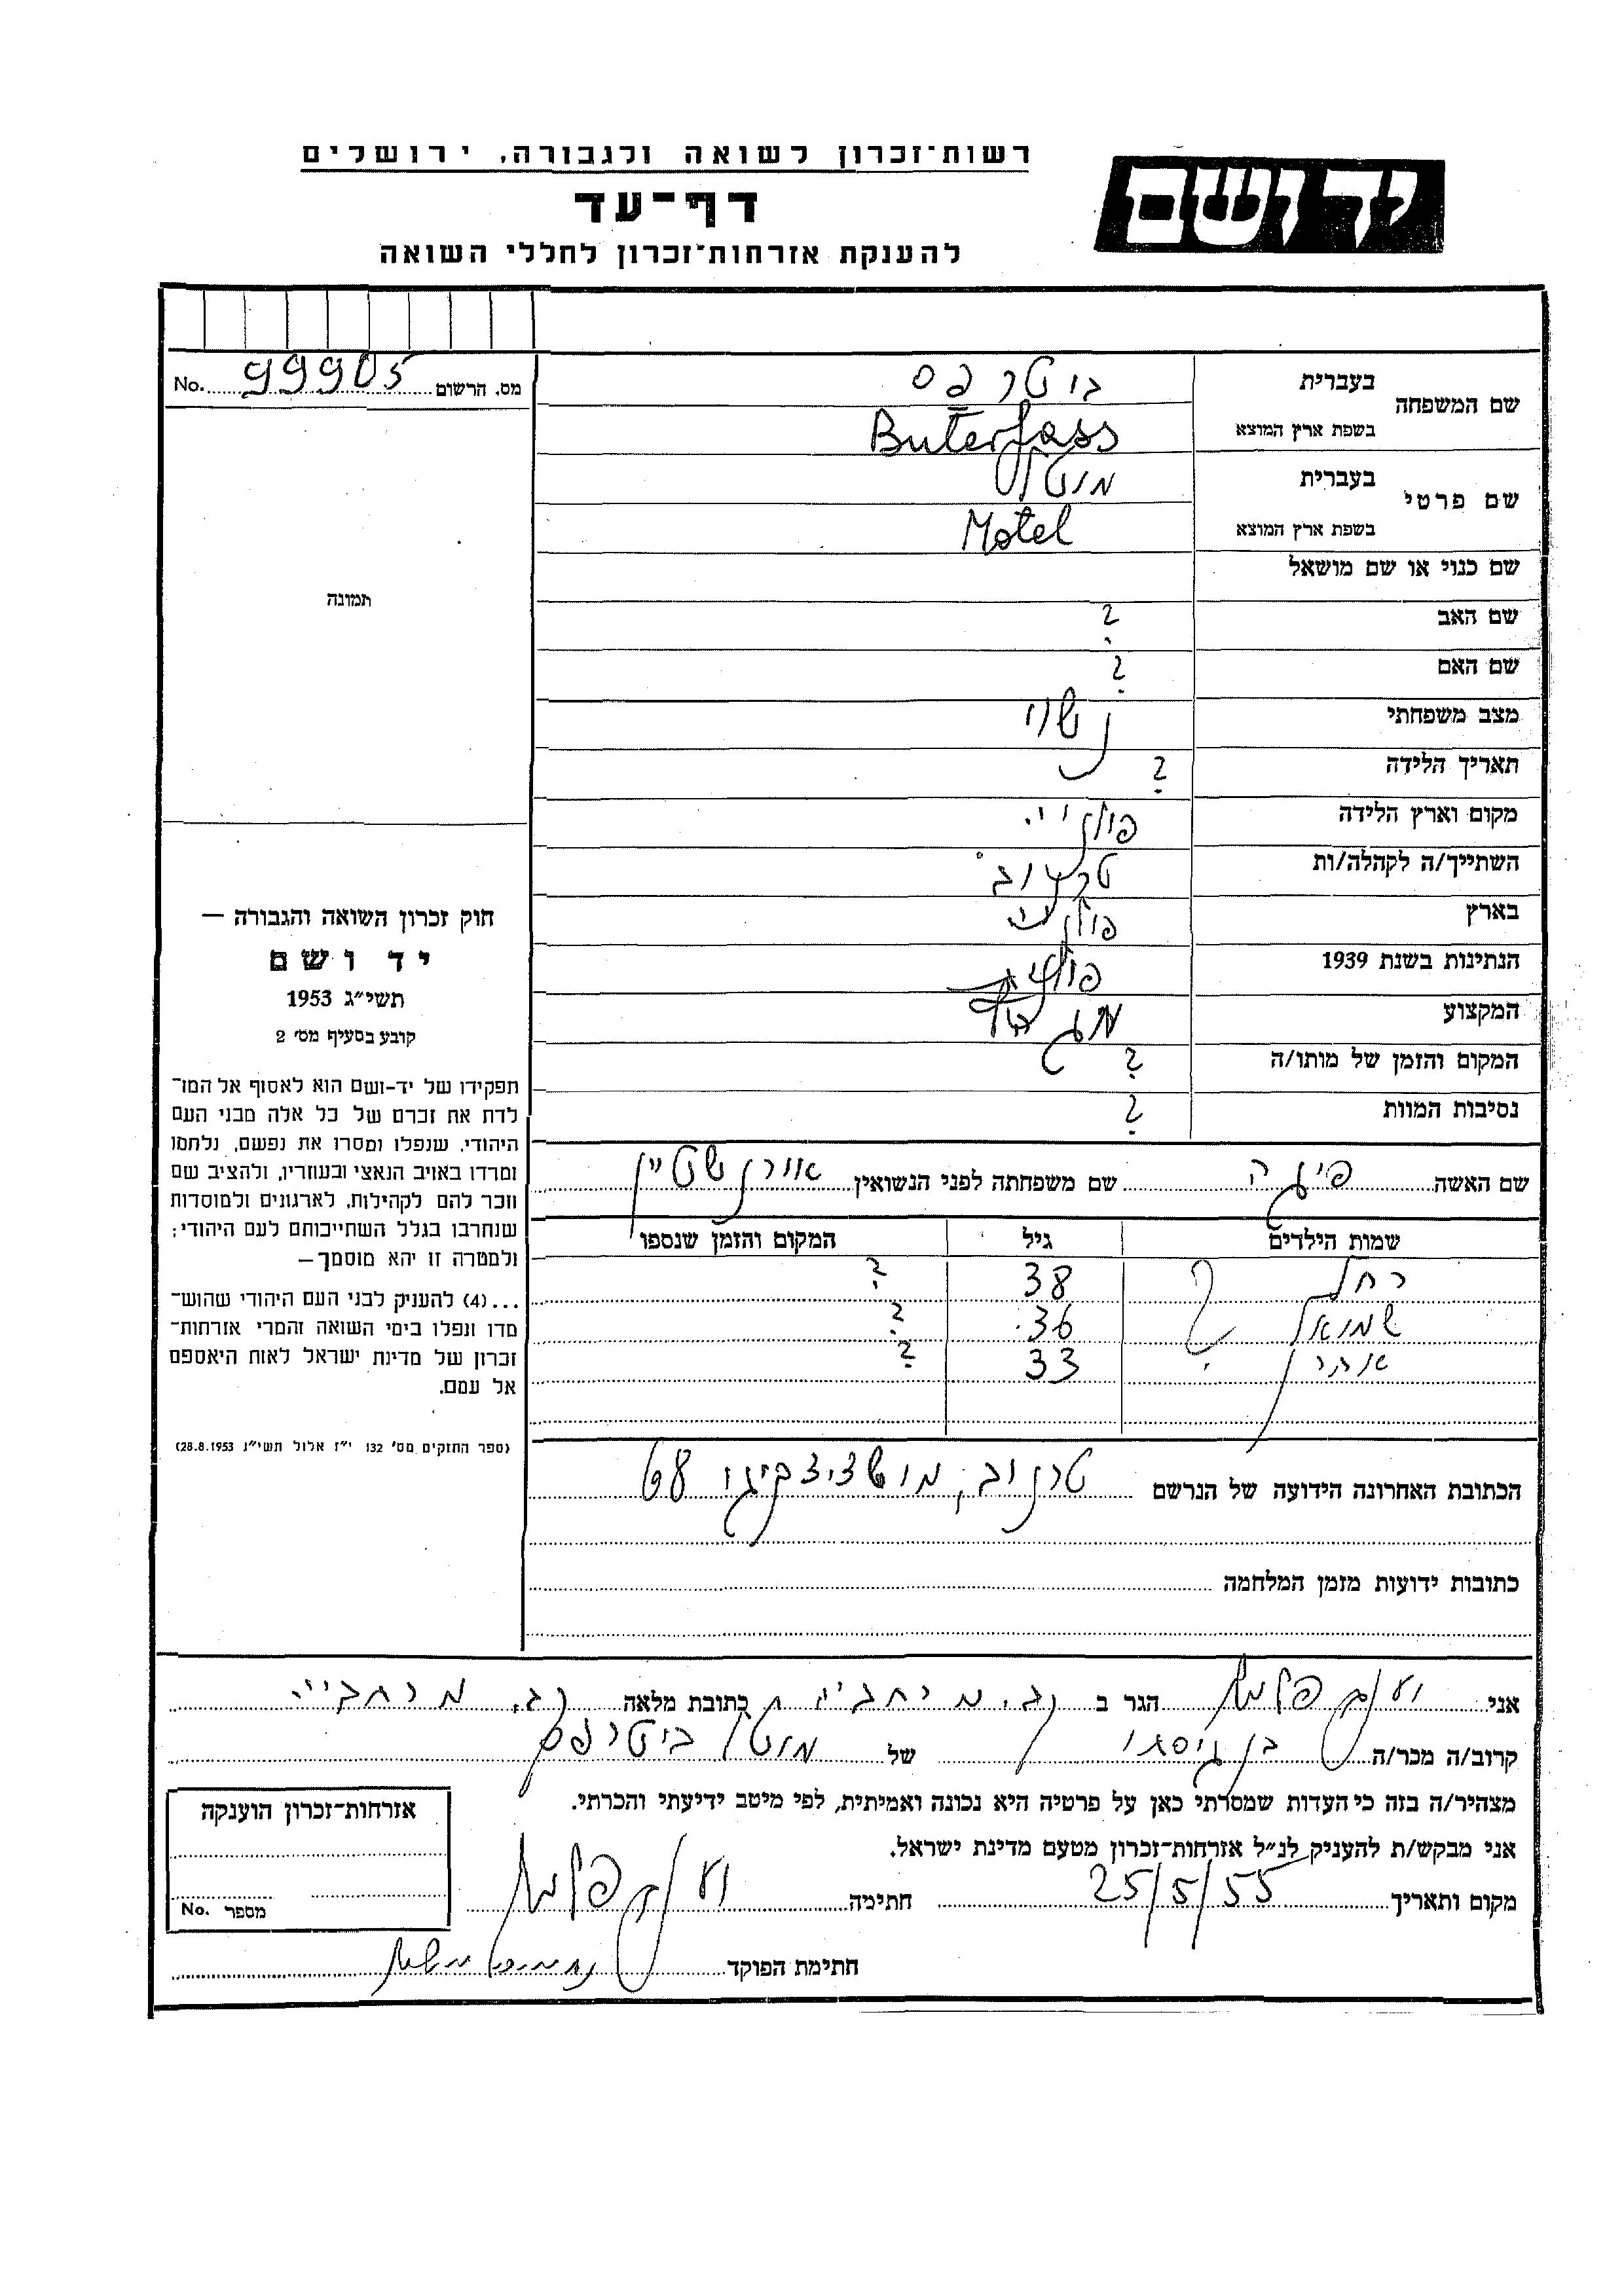 רשות־זכרון לשואה ולגבורה, ירושלים
יד ושם
דף־עד
להענקת אזרחות־זכרון לחללי השואה
מס. הרשום 99905 No.
שם המשפחה
בעברית ביטרפס
בשפת ארץ המוצא Buterfass
שם פרטי
בעברית מוטל
בשפת ארץ המוצא Motel
שם כנוי או שם מושאל
שם האב ?
שם האם ?
מצב משפחתי נשוי
תאריך הלידה ?
מקום וארץ הלידה פולניי.
השתייך/ה לקהלה/ות טרנוב
בארץ פולניי
הנתינות בשנת 1939 פולנית
המקצוע
המקום והזמן של מותו/ה ?
נסיבות המוות ?
תמונה
חוק זכרון השואה והגבורה —
יד ושם
תשי״ג 1953
קובע בסעיף מס׳ 2
תפקידו של יד-ושם הוא לאסוף אל המו־
לדת את זכרם של כל אלה מבני העם
היהודי, שנפלו ומסרו את נפשם, נלחמו
ומרדו באויב הנאצי ובעוזריו, ולהציב שם
וזכר להם לקהילות, לארגונים ולמוסדות
שנחרבו בגלל השתייכותם לעם היהודי;
ולמטרה זו יהא מוסמך—
...(4) להעניק לבני העם היהודי שהוש־
מדו ונפלו בימי השואה והמרי אזרחות־
זכרון של מדינת ישראל לאות היאספם
אל עמם.
(ספר החוקים מס׳ 132 י״ז אלול תשי״ג 28.8.1953)
שם האשה פיגה שם משפחתה לפני הנשואין אורנשטיין
שמות הילדים גיל המקום והזמן שנספו
רחל ? 38 ?
שמואל 36 ?
אהרן 33 ?
הכתובת האחרונה הידועה של הנרשם טרנוב, מושציצקיגו 68
כתובות ידועות מזמן המלחמה
אני הגר ב קב. מרחביה כתובת מלאה קב. מרחביי.
קרוב/ה מכר/ה בן גיסתו של מוטל ביטרפס
מצהיר/ה בזה כי העדות שמסרתי כאן על פרטיה היא נכונה ואמיתית, לפי מיטב ידיעתי והכרתי.
אני מבקש/ת להעניק לנ״ל אזרחות־זכרון מטעם מדינת ישראל.
מקום ותאריך 25/5/55 חתימה
חתימת הפוקד
אזרחות־זכרון הוענקה
מספר No.